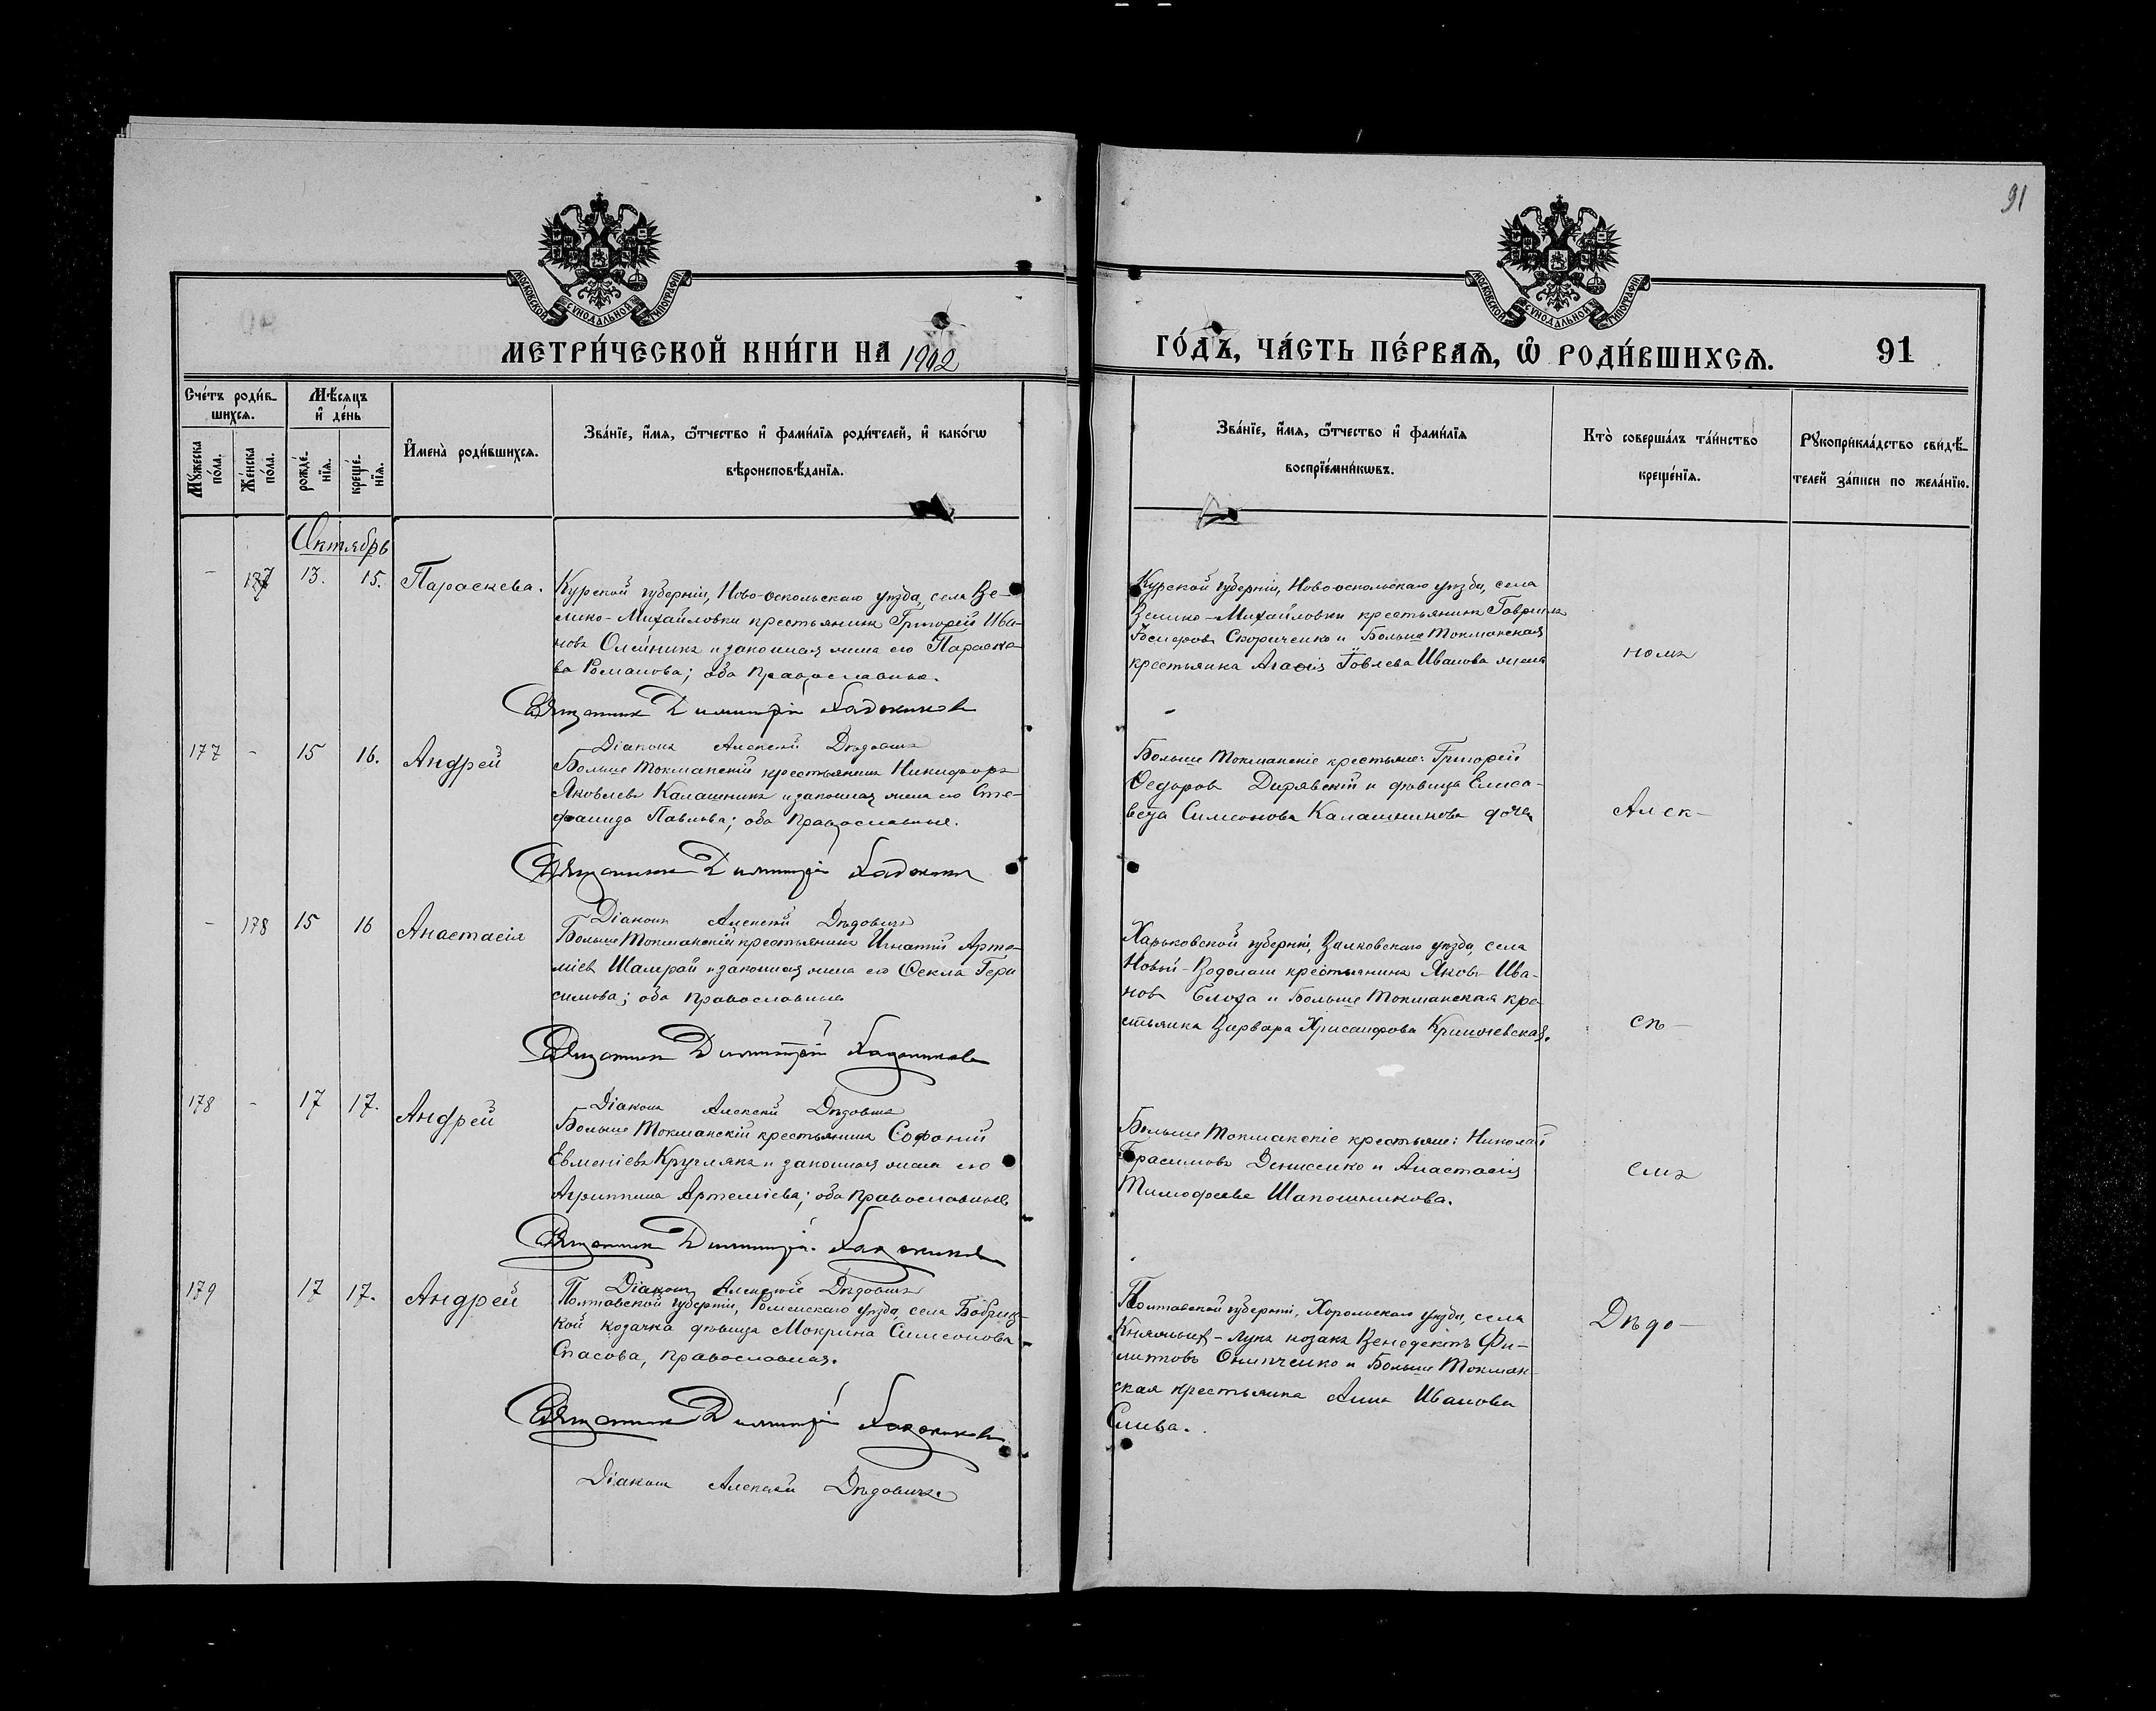 91
МОСКОВСКОЙ СУНОДАЛЬНОЙ ТИПОГРАФІИ
МОСКОВСКОЙ СУНОДАЛЬНОЙ ТИПОГРАФІИ
МЕТРИ́ЧЕСКОЙ КНИ́ГИ НА 1902
ГО́ДЪ, ЧА́СТЬ ПЕ́РВАѦ, Ѡ РОДИ́ВШИХСѦ.
91
Сче́тъ роди́в-
шихсѧ.
Мꙋ́жеска
по́ла.
Же́нска
по́ла.
Мѣ́сѧцъ
и҆ де́нь
рожде́-
нїѧ.
креще́-
нїѧ.
И҆мена̀ роди́вшихсѧ.
Зва́нїе, и҆́мѧ, ѻ҆́тчество и҆ фами́лїѧ роди́телей, и҆ како́гѡ
вѣроисповѣ́данїѧ.
Зва́нїе, и҆́мѧ, ѻ҆́тчество и҆ фами́лїѧ
воспрїе́мникѡвъ.
Кто̀ соверша́лъ та́инство
креще́нїѧ.
Рꙋкоприкла́дство свидѣ́-
телей за́писи по жела́нїю.
Октябрь
- 177 13. 15. Параскева.
Курской губерніи, Ново-оскольскаго уѣзда, села Ве-
лико-Михайловки крестьянинъ Григорій Ива-
новъ Олейникъ и законная жена его Параске-
ва Романова; оба православные.
Священникъ Димитрій
Діаконъ Алексій Дѣдовичъ
Курской губерніи, Новооскольскаго уѣзда, села
Велико-Михайловки крестьянинъ Гавріилъ
и Больше Токмакская
крестьянка Иванова жена
номъ
177 - 15 16. Андрей
Больше Токмакскій крестьянинъ Никифоръ
Яковлевъ Калашникъ и законная жена его Сте-
фанида Павлова; оба православные.
Священникъ Димитрій
Діаконъ Алексій Дѣдовичъ
Больше Токмакскіе крестьяне: Григорій
Ѳедоровъ Дирявскій и дѣвица Елиса-
вета Симеонова Калашникова дочь
Алек-
- 178 15 16 Анастасія
Больше Токмакскій крестьянинъ Игнатій Арте-
міевъ Шамрай и законная жена его Ѳекла Гера
симова; оба православные
Священникъ Димитрій
Діаконъ Алексій Дѣдовичъ
Харьковской губерніи, Валковскаго уѣзда, села
Новой-Водолаги крестьянинъ Яковъ Ива-
новъ и Больше Токмакская кре-
стьянка Варвара Хрисанфова
сѣ-
178 - 17 17. Андрей
Больше Токмакскій крестьянинъ Софоній
Евменіевъ Круглякъ и законная жена его
Агриппина Артеміева; оба православные
Священникъ Димитрій
Діаконъ Алексій Дѣдовичъ
Больше Токмакскіе крестьяне: Николай
Герасимовъ Денисенко и Анастасія
Тимофеева Шапошникова.
емъ
179 17 17. Андрей
Полтавской губерніи, Роменскаго уѣзда, села Бобриц-
кой козачка дѣвица Мокрина Симеонова
Спасова, православная.
Священникъ Димитрій
Діаконъ Алексій Дѣдовичъ
Полтавской губерніи, Хорольскаго уѣзда, села
Лука козакъ Венедиктъ Фи-
липповъ Онипченко и Больше Токмак-
ская крестьянка Анна Иванова
Слива.
Дѣдо-